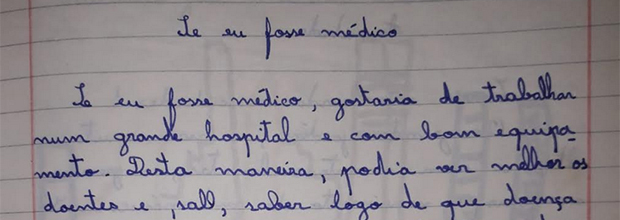 Se eu fosse médico
Se eu fosse médico, gostaria de trabalhar
num grande hospital e com bom equipa-
mento. Desta maneira, podia ver melhor os
doentes e, saber logo de que doença